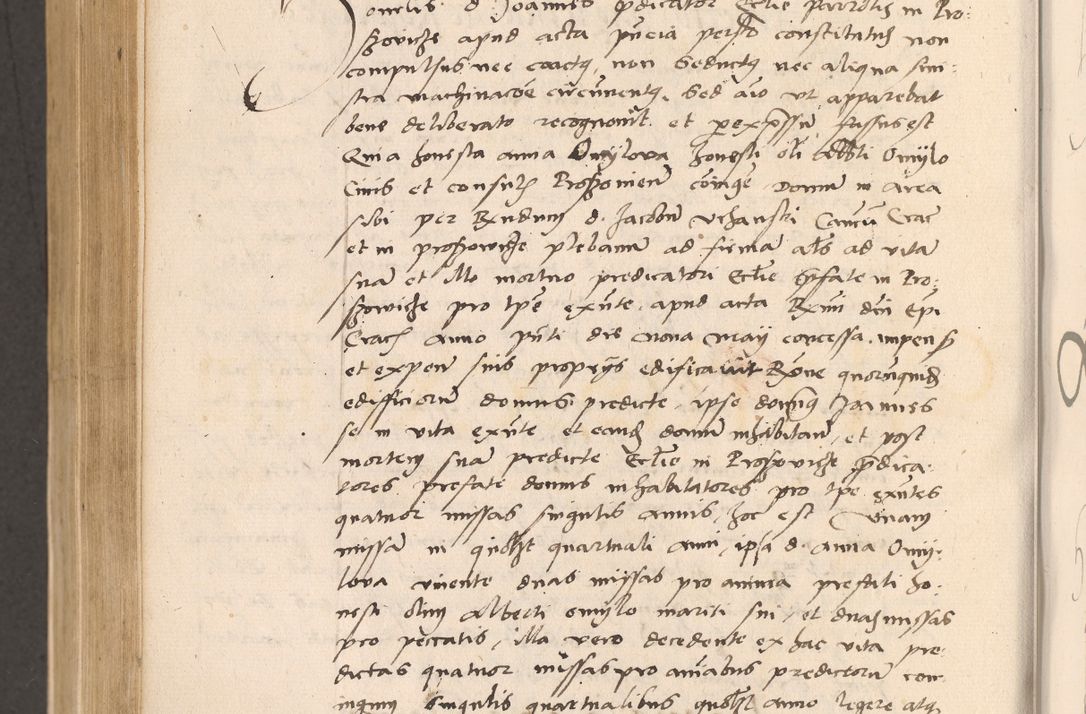 d Joannes pdicator Eccłie parrotłis in Pro:
ssoviche apud acta pñcia person constitutus non
compulsus nec coactus, non seductus nec aliqua sini:
stra machinacõe circũuentus, sed aĩo ut apparebat
bene deliberato recognouit et per expssum fassus est
Quia honesta anna Omylova honesti oli Alberti Omylo
Ciuis et consulis Prossouien coniux domum in area
sibi per Rndum d. Jacobum Vchanski Canonicum Crac
et in prossowiche plebanum ad firmã als ad vita
suã et illo mortuo predicatori Eccłie pfate in Pro:
ssowiche pro tpe exñte, apud acta Rxmi dñi Epi
Crac anno pñti die nona may concessa, impensis
et expen suis proprys edificauit Rõne quorumquid
edifficiorum domus predicte, ipse dominus Joannes
se in vita exñte et eand domum inhabitan, et post
mortem suã predicte Eccłie in Prossoviche pdica:
tores prefate domus inhabitatores pro tpe exñtes
quatuor missas singulis annis, hoc est Vnam
missã in quolibet quartuali anni, ipsa d. anna Omy:
lova viuente duas missas pro anima prefati ho:
nesti olim Alberti omylo mariti sui, et duas missas
pro peccatis, illa vero decedente ex hac vita pre:
dictas quatuor missas pro aĩabus predictorum con:
iugum singulis quartualibus quolibet anno legere atque